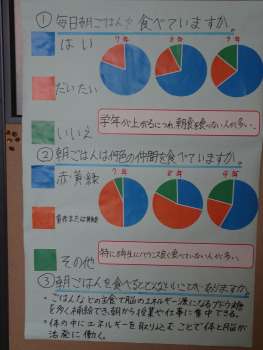 ①毎日朝ごはんを食べていますか。
はい
7年 8年 9年
だいたい
いいえ
学年が上がるにつれ、朝食を食べない人が多い。
②朝ごはんは何色の仲間を食べていますか。
赤・黄・緑
7年 8年 9年
その他
特に8年生にバランス良く食べていない人が多い。
③朝ごはんを食べるとどんないいことがありますか。
・ごはんなどの主食で脳のエネルギー源になるブドウ糖
を多く補給でき、朝から授業や仕事に集中できる。
・体の中にエネルギーを取り込むことで体と脳が
活発に働く。